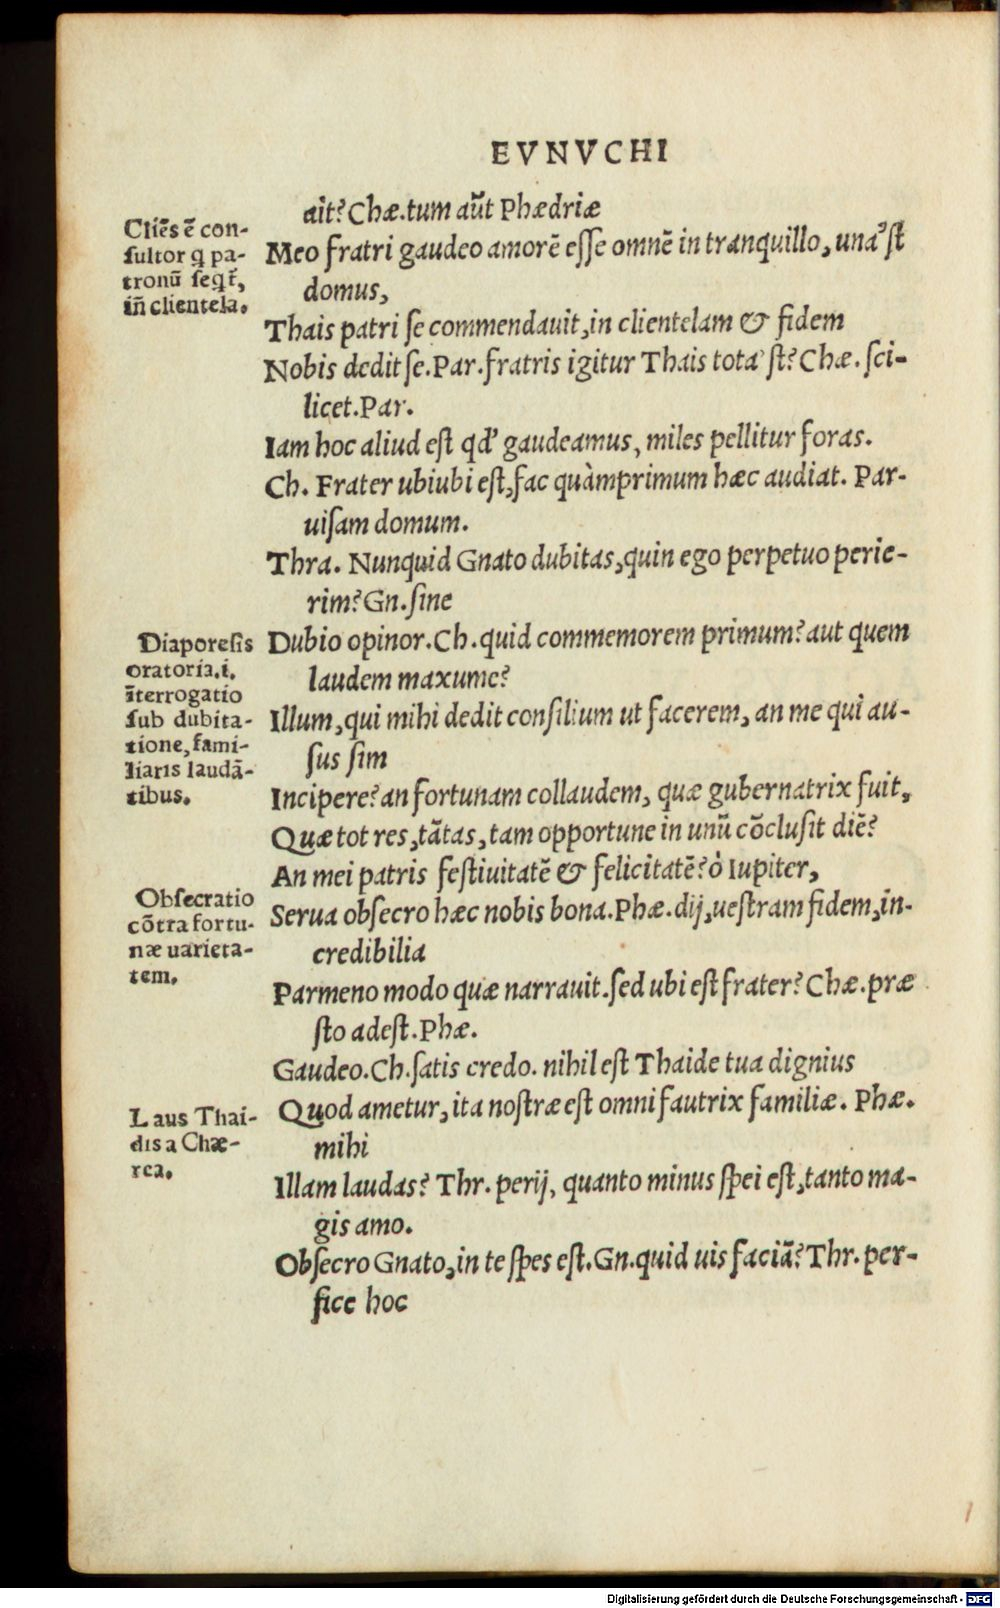 EVNVCHI
ait? Chæ. tum aūt Phædriæ
Meo fratri gaudeo amorē eſſe omnē in tranquillo, una'ſt
domus,
Thais patri ſe commendauit, in clientelam & fidem
Nobis dedit ſe. Par. fratris igitur Thais tota'ſt? Chæ. ſci-
licet. Par.
Iam hoc aliud eſt qd' gaudeamus, miles pellitur foras.
Ch. Frater ubiubi eſt, fac quàmprimum hæc audiat. Par-
uiſam domum.
Thra. Nunquid Gnato dubitas, quin ego perpetuo perie-
rim? Gn. ſine
Dubio opinor. Ch. quid commemorem primum? aut quem
laudem maxume?
Illum, qui mihi dedit conſilium ut facerem, an me qui au-
ſus ſim
Incipere? an fortunam collaudem, quæ gubernatrix fuit,
Quæ tot res, tātas, tam opportune in unū cōcluſit diē?
An mei patris feſtiuitatē & felicitatē? ò Iupiter,
Serua obſecro hæc nobis bona. Phæ. dij, ueſtram fidem, in-
credibilia
Parmeno modo quæ narrauit. ſed ubi eſt frater? Chæ. præ
ſto adeſt. Phæ.
Gaudeo. Ch. ſatis credo. nihil eſt Thaide tua dignius
Quod ametur, ita noſtræ eſt omni fautrix familiæ. Phæ.
mihi
Illam laudas? Thr. perij, quanto minus ſpei eſt, tanto ma-
gis amo.
Obſecro Gnato, in te ſpes eſt. Gn. quid uis faciā? Thr. per-
fice hoc
Cliēs ē con-
ſultor q pa-
tronū ſeqr̃,
iñ clientela.
Diaporeſis
oratoria. i.
īterrogatio
ſub dubita-
tione, fami-
liaris laudā-
tibus.
Obſecratio
cōtra fortu-
næ uarieta-
tem.
Laus Thai-
dis a Chæ-
rea.
Digitalisierung gefördert durch die Deutsche Forschungsgemeinschaft - DFG